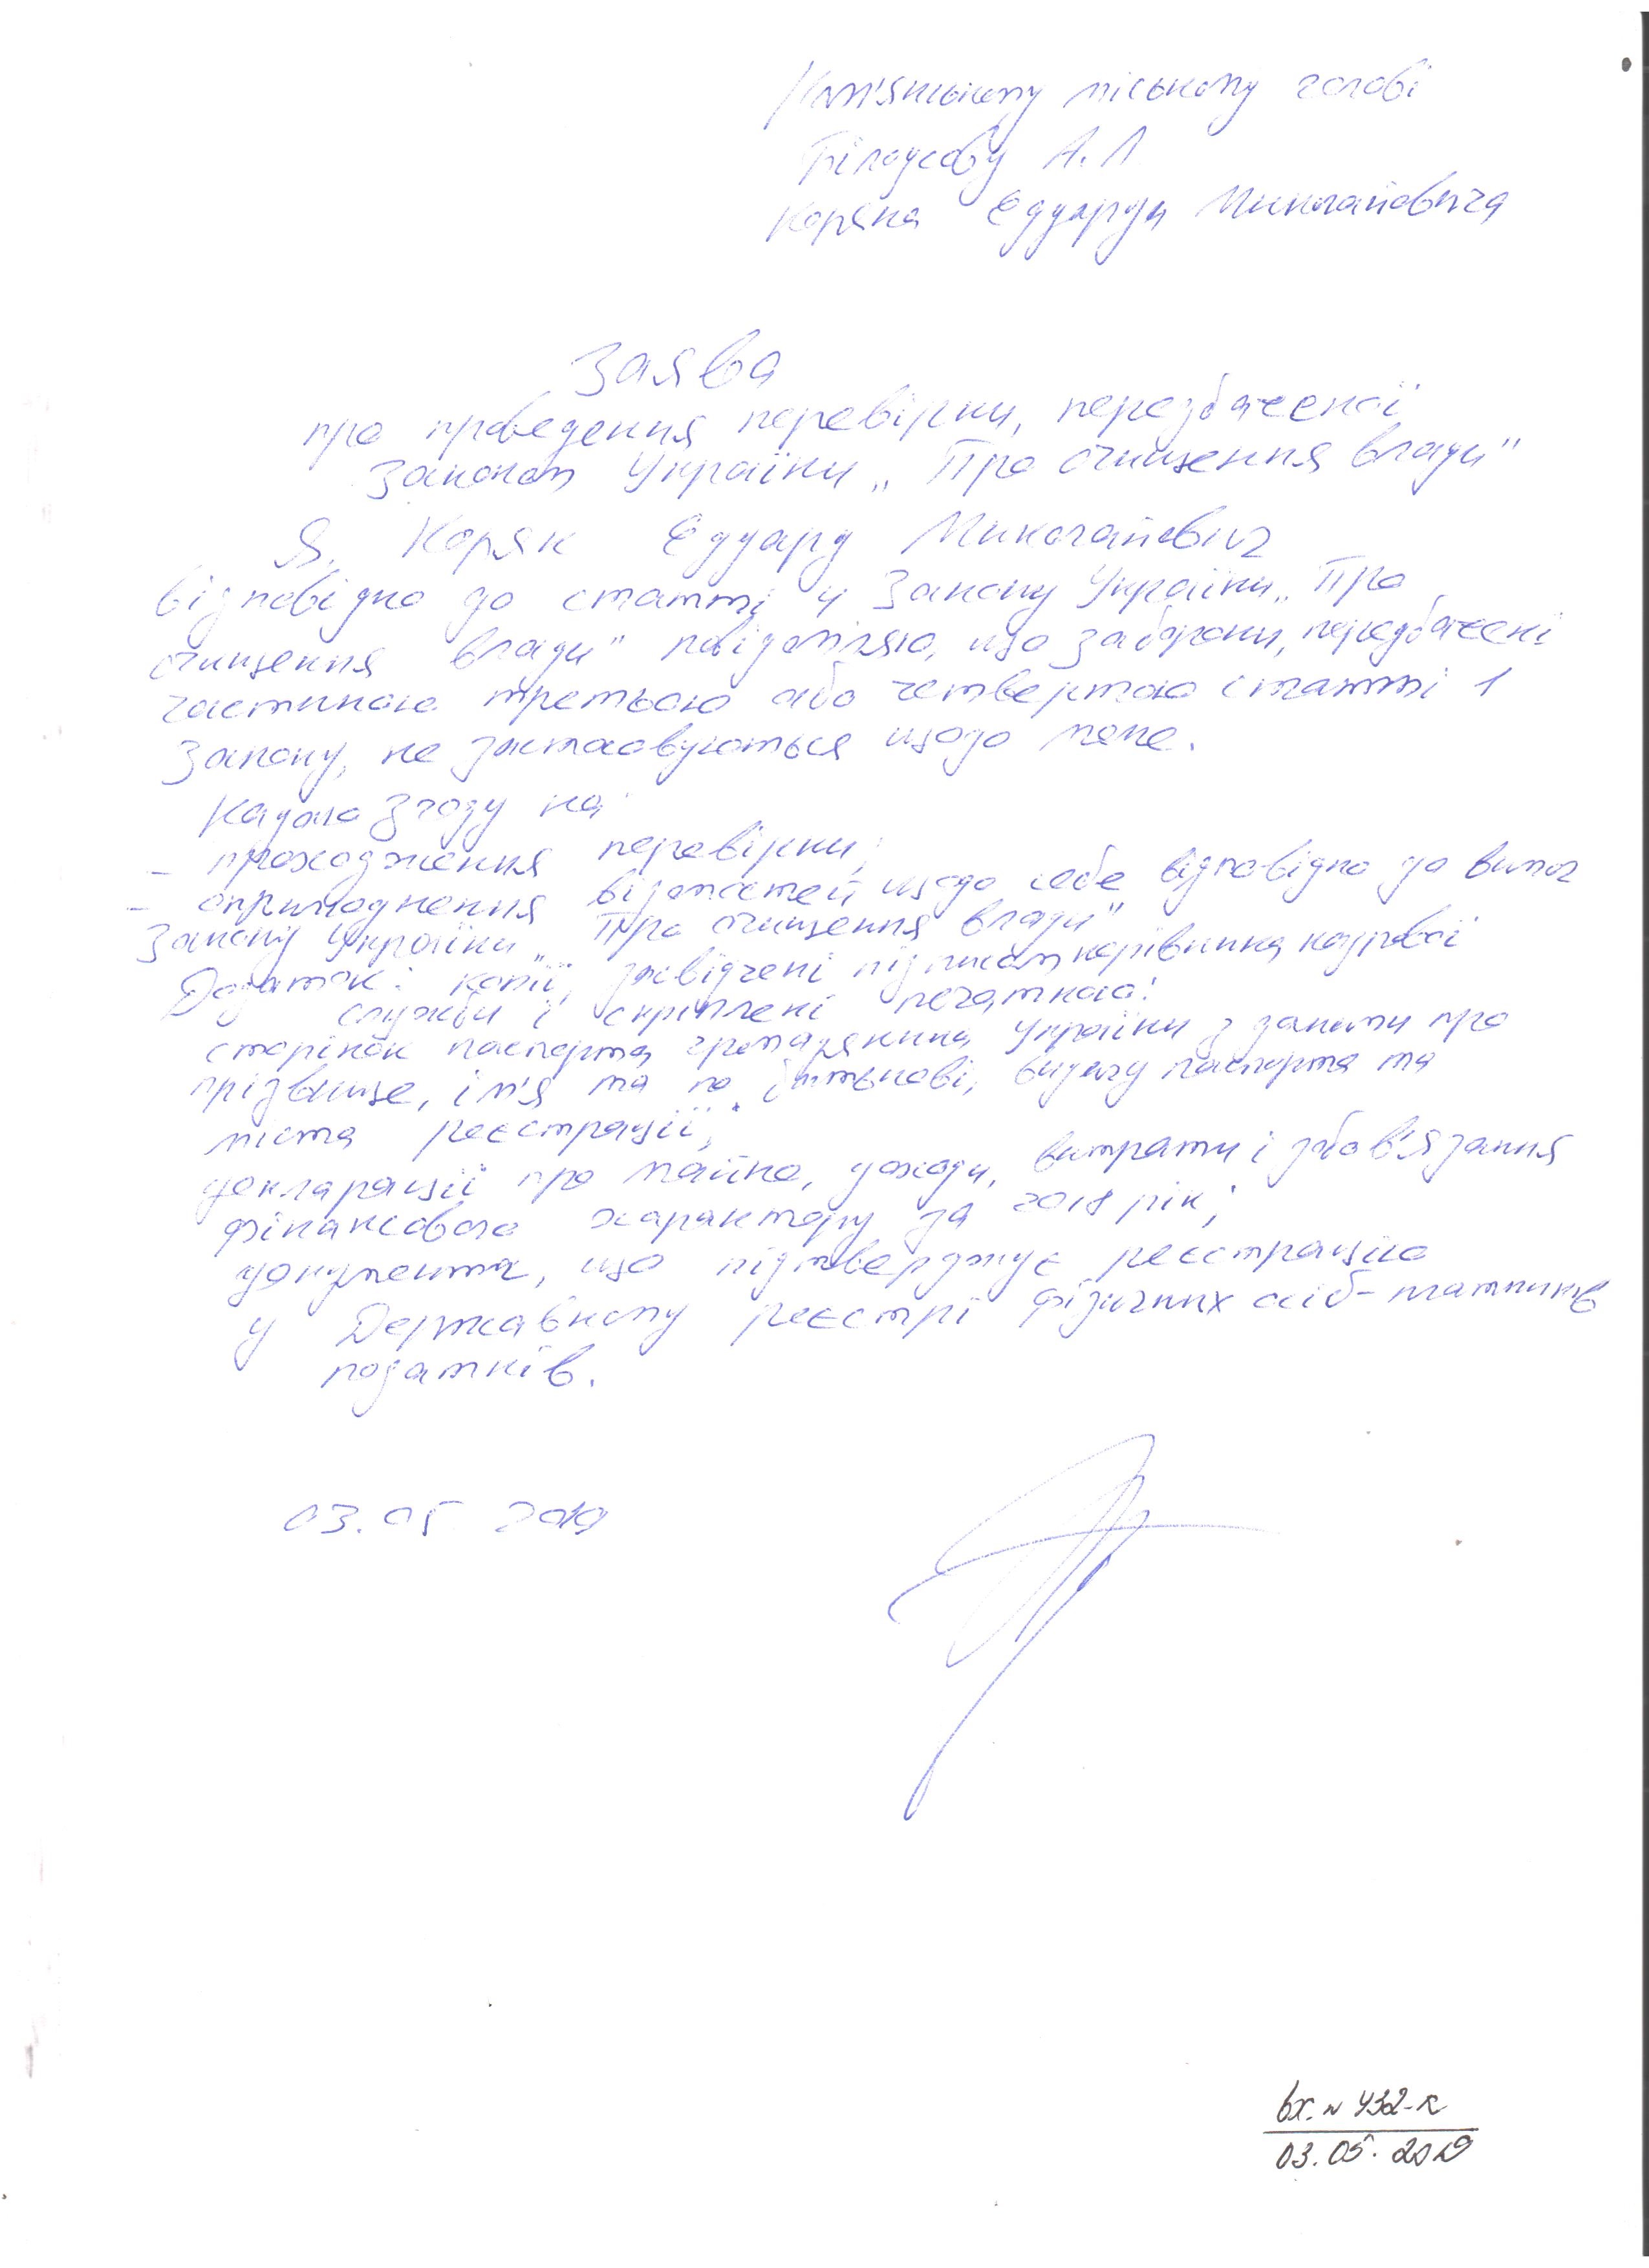 Кам'янському міському голові
Білоусову А.Л
Коряка Едуарда Миколайовича
Заява
про проведення перевірки, передбаченої
Законом України „Про очищення влади"
Я, Коряк Едуард Миколайович
відповідно до статті 4 Закону України „Про
очищення влади" повідомляю, що заборони, передбачені
частиною третьою або четвертою статті 1
Закону, не застосовуються щодо мене.
Надаю згоду на:
- проходження перевірки;
- оприлюднення відомостей щодо себе відповідно до вимог
Закону України „Про очищення влади"
Додаток: копії, засвідчені підписом керівника кадрової
служби і скріплені печаткою:
сторінок паспорта громадянина України з даними про
прізвище, ім'я та по батькові, видачу паспорта та
місця реєстрації;
декларації про майно, доходи, витрати і зобов'язання
фінансового характеру за 2018 рік;
документа, що підтверджує реєстрацію
у Державному реєстрі фізичних осіб-платників
податків.
03.05 2019
Вх. № 432-К
03.05.2019